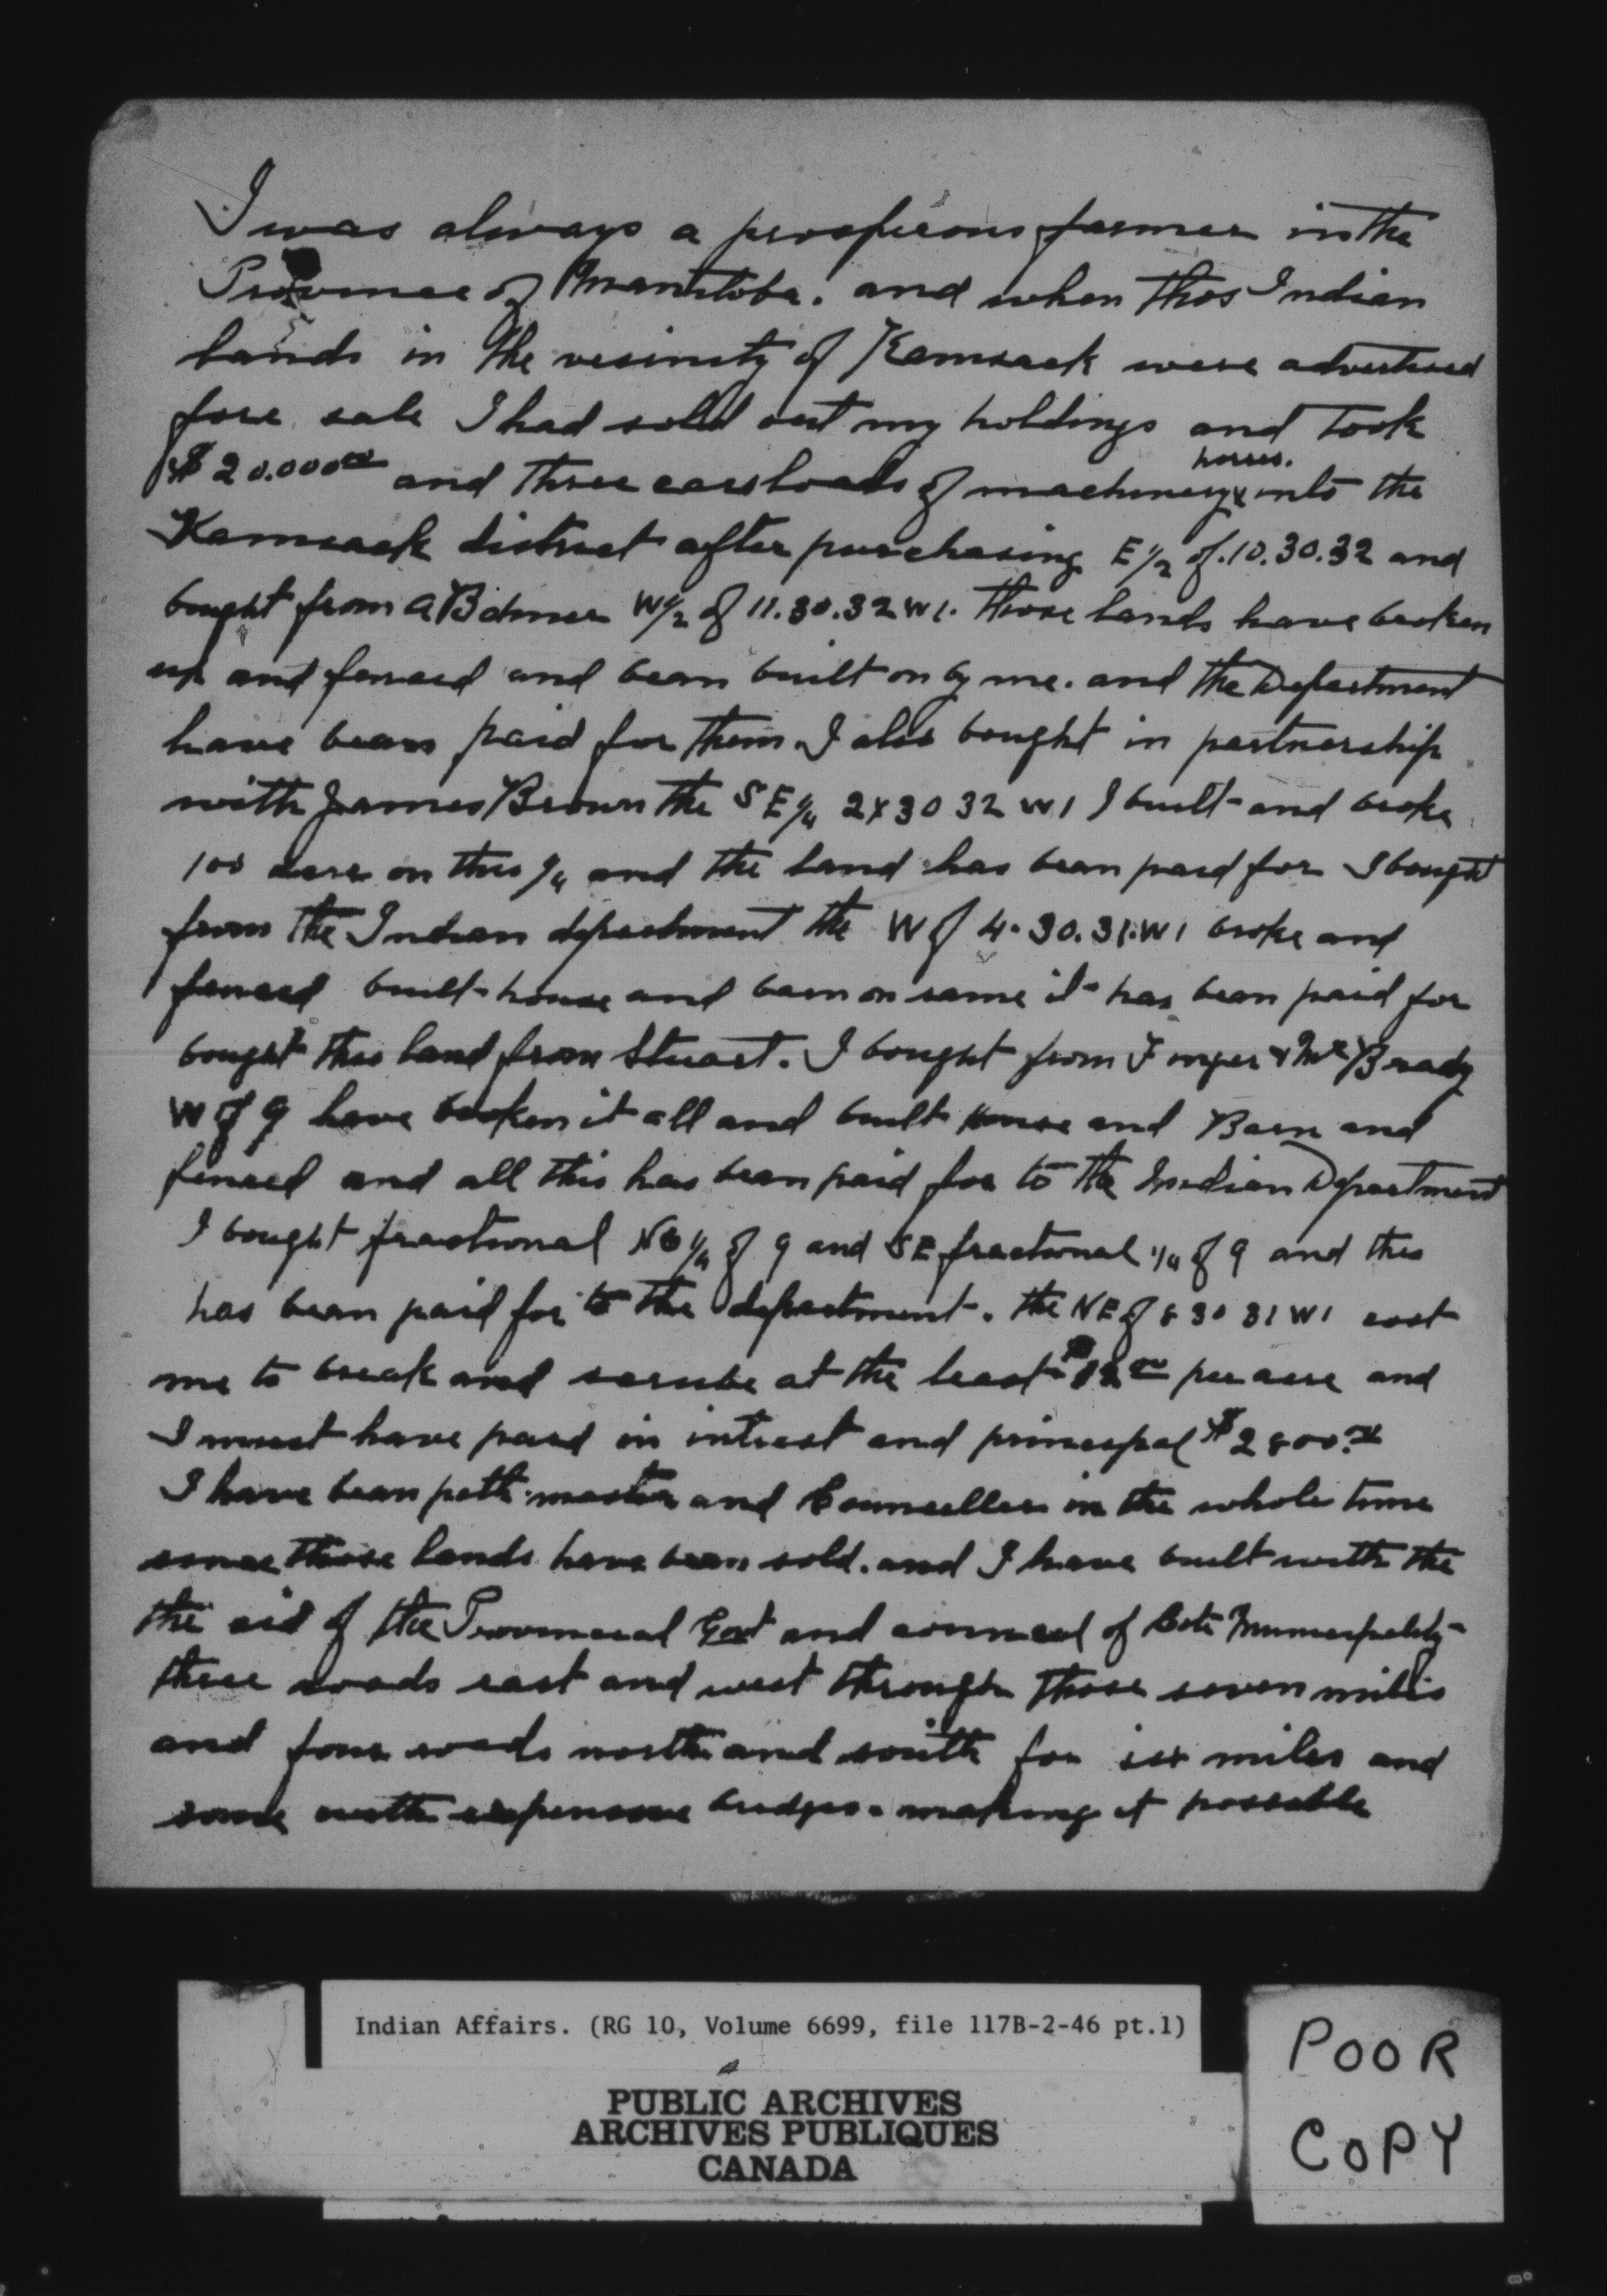 I was always a prosperous farmer in the
Province of Manitoba. and when thos Indian
lands in the vesinity of Kamsack were advertised
fore sale I had sold out my holdings and took
horses.
$20.000 00 and three carsloads of machinery x into the
Kamsack district after purchasing E 1/2 of .10.30.32 and
bought from A W 1/2 of 11.30.32 W1. those lands have broken
up and fensed and bean built on by me. and the Department
have bean paid for them I also bought in partnership
with James Brown the S E 1/4 30 32 W1 I built and broke
100 acres on this 1/4 and the land has bean paid for I bought
from the Indian department the W of 4.30.31.W1 broke and
fensed built house and barn on same it has bean paid for
bought this land from Stuart. I bought from & Brady
W of 9 have broken it all and built house and Barn and
fensed and all this has bean paid for to the Indian Department
I bought fractional 1/4 of 9 and SE fractional 1/4 of 9 and this
has bean paid for to the department. the NE of 8 30 31 W1 cost
me to break and scrube at the least per acre and
I must have paid in intrest and prinespal $2800.
I have bean path master and Counceller in the whole time
sence those lands have bean sold. and I have built with the
the aid of the Provinceal Govt and of Cote
three roads east and west through those seven miles
and four roads north and south for six miles and
some with expensove bridges. making it possable
Indian Affairs. (RG 10, Volume 6699, file 117B-2-46 pt.1)
PUBLIC ARCHIVES
ARCHIVES PUBLIQUES
CANADA
POOR
COPY